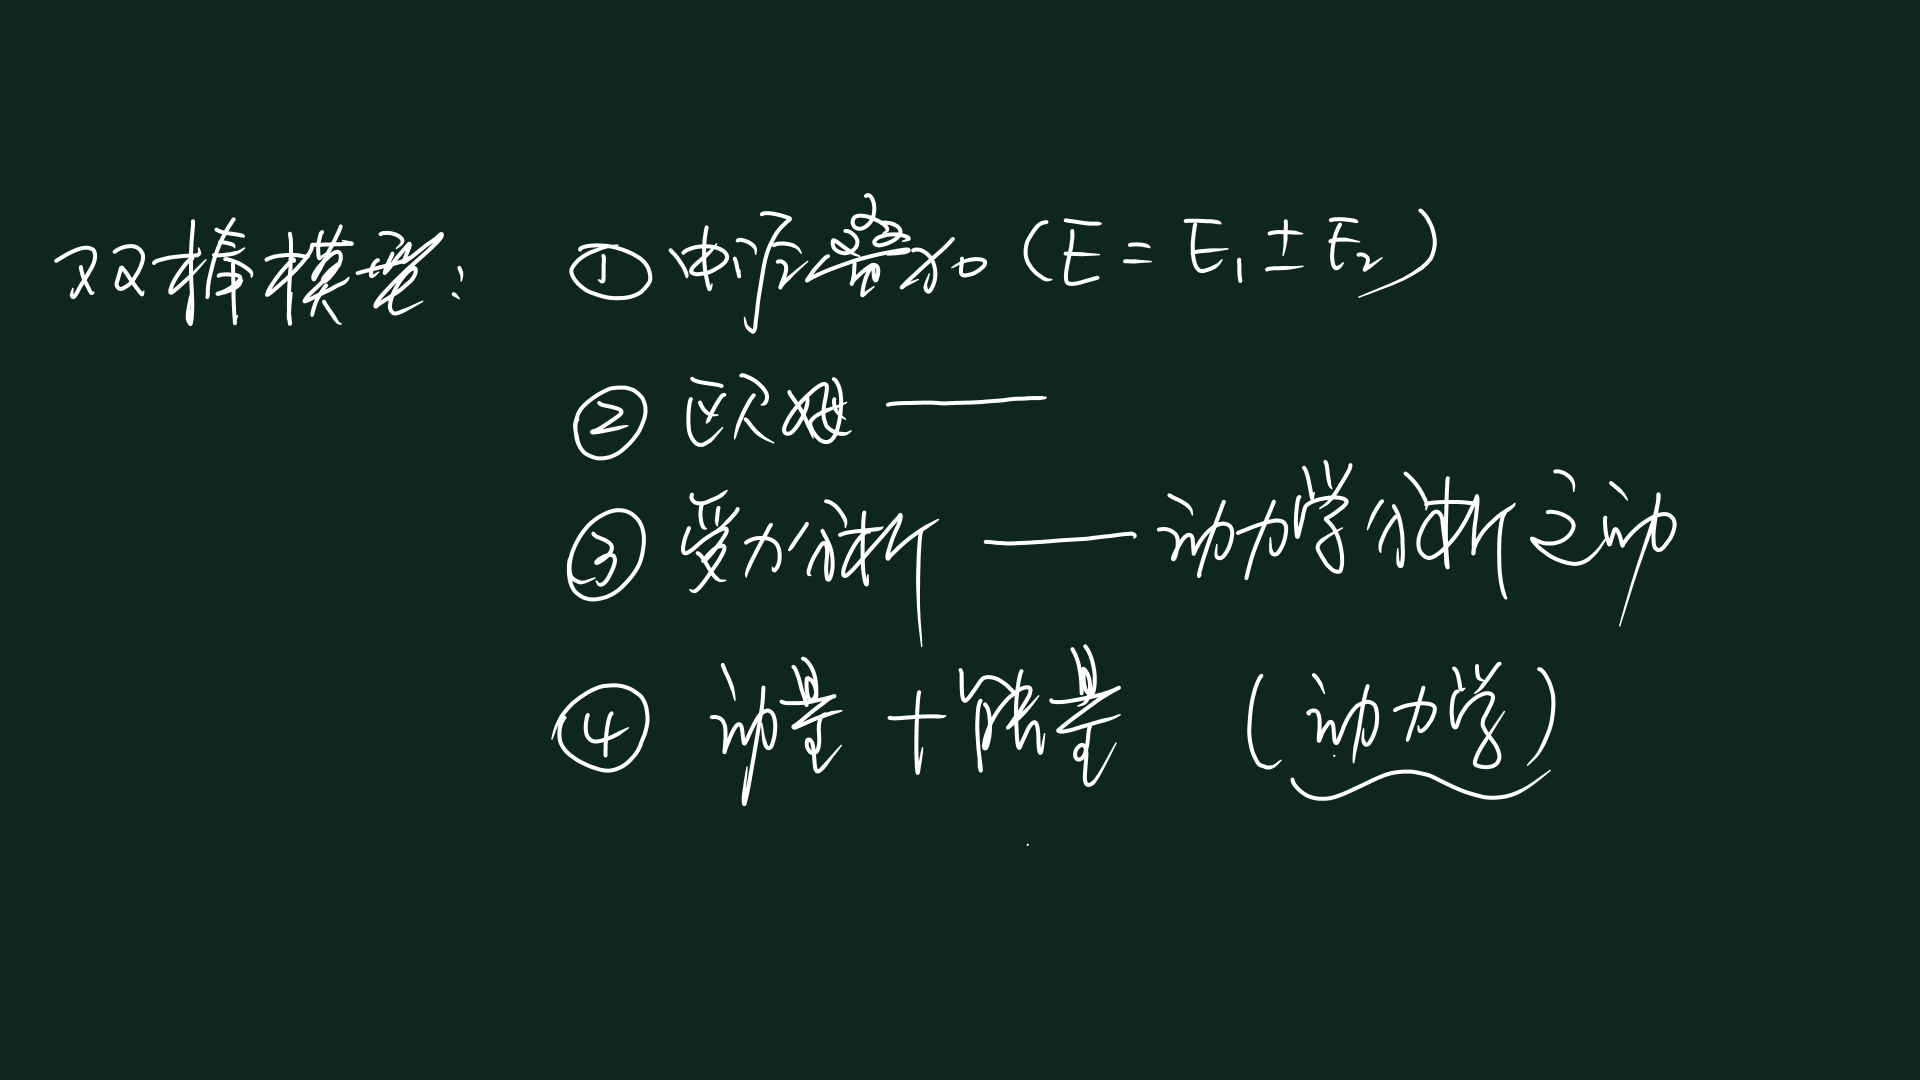 双棒模型: ① 电源叠加 (E = E₁ ± E₂)
② 欧姆 ——
③ 受力分析 —— 动力学分析运动
④ 动量 + 能量 (动力学)